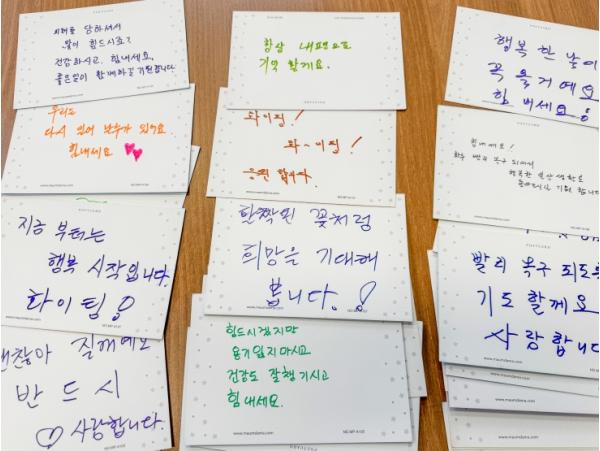 피해를 당하셔서
많이 힘드시죠?
건강하시고, 힘내세요.
좋은일이 함께하길 기원합니다.
우리는
다시 일어 난다가 있어요.
힘내세요
www.maumdana.com
지금 부터는
행복 시작입니다.
화이팅!
괜찮아 질거예요
반드시
사랑합니다.
POSTCARD
항상 내편으로
기억 할게요.
www.maumdana.com
화이팅!
화~이팅!
응원 합니다.
활짝핀 꽃처럼
희망을 기대해
봅니다.!
힘드시겠지만
용기잃지마시고
건강도 잘챙기시고
힘내세요.
www.maumdana.com
행복 한 날이
꼭 올거예요
힘 내세요!
POSTCARD
힘내세요!
빨리 복구 되어서
행복한 일상생활로
기원 합니다
www.maumdana.com
빨리 복구 되도록
기도 할께요
사랑합니다
www.maumdana.com